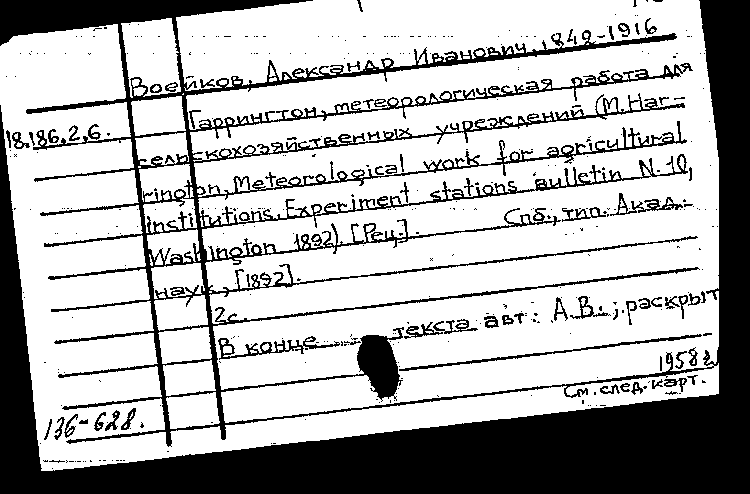 Воейков, Александр Иванович, 1842-1916
18.186.2.6.
Гаррингтон, метеорологическая работа для
сельскохозяйственных учреждений (M. Har-
rington, Meteorological work for agricultural
institutions. Experiment stations bulletin N. 10,
Washington 1892). [Рец.]. Спб., тип. Акад.
наук, [1892].
2с.
В конце текста авт: А.В.; раскрыт
1958г
См. след. карт.
136-628.